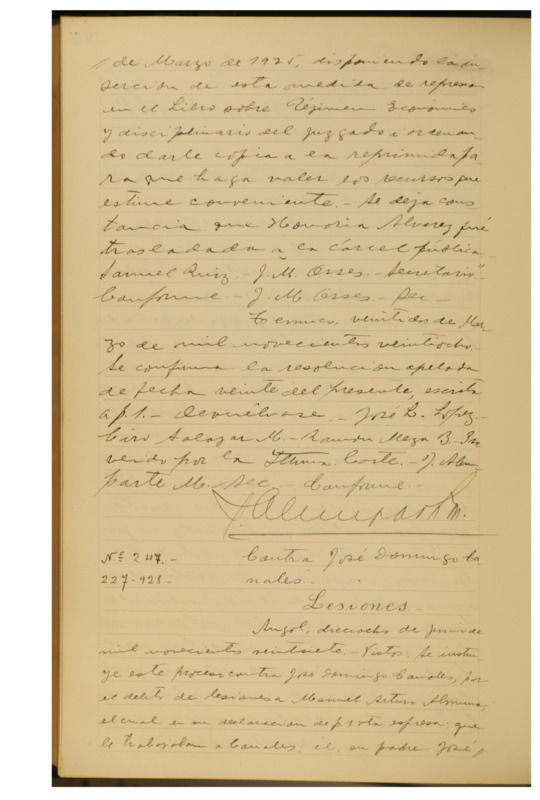 1 de Marzo de 1925, disponiendo la in-
sercion de esta medida de represion
en el Libro sobre Régimen Económico
y disciplinario del juzgado a ordenan-
do darle copia a la reprimida pa-
ra que haga valer los recursos que
estime conveniente.- Se deja cons-
tancia que Honoria Alvarez fué
trasladada a la cárcel pública
Samuel Ruiz.- J. M. Orses.- Secretario"
Conforme.- J. M. Orses.- Sec.-
Temuco, veintidos de Mar-
zo de mil novecientos veintiocho.-
Se confirma la resolucion apelada
de fecha veinte del presente, escrita
a f. 1.- Devuélvase.- José L. Lopez.-
Ciro Salazar M.- Ramon Meza B.- Pro
veido por la Iltma. Corte.- J. Alem-
parte M. sec.- Conforme.-
J. Alemparte M.
N.º 247.-
Contra José Domingo Ca-
227-928.-
nales.-
Lesiones.-
Angol, dieciocho de junio de
mil novecientos veintisiete.- Vistos: Se instru-
ye este proceso contra José Domingo Canales, por
el delito de lesiones a Manuel Arturo
el cual en su declaracion de f. 1 vta espresa: que
le trabajaban a Canales, el, su padre José